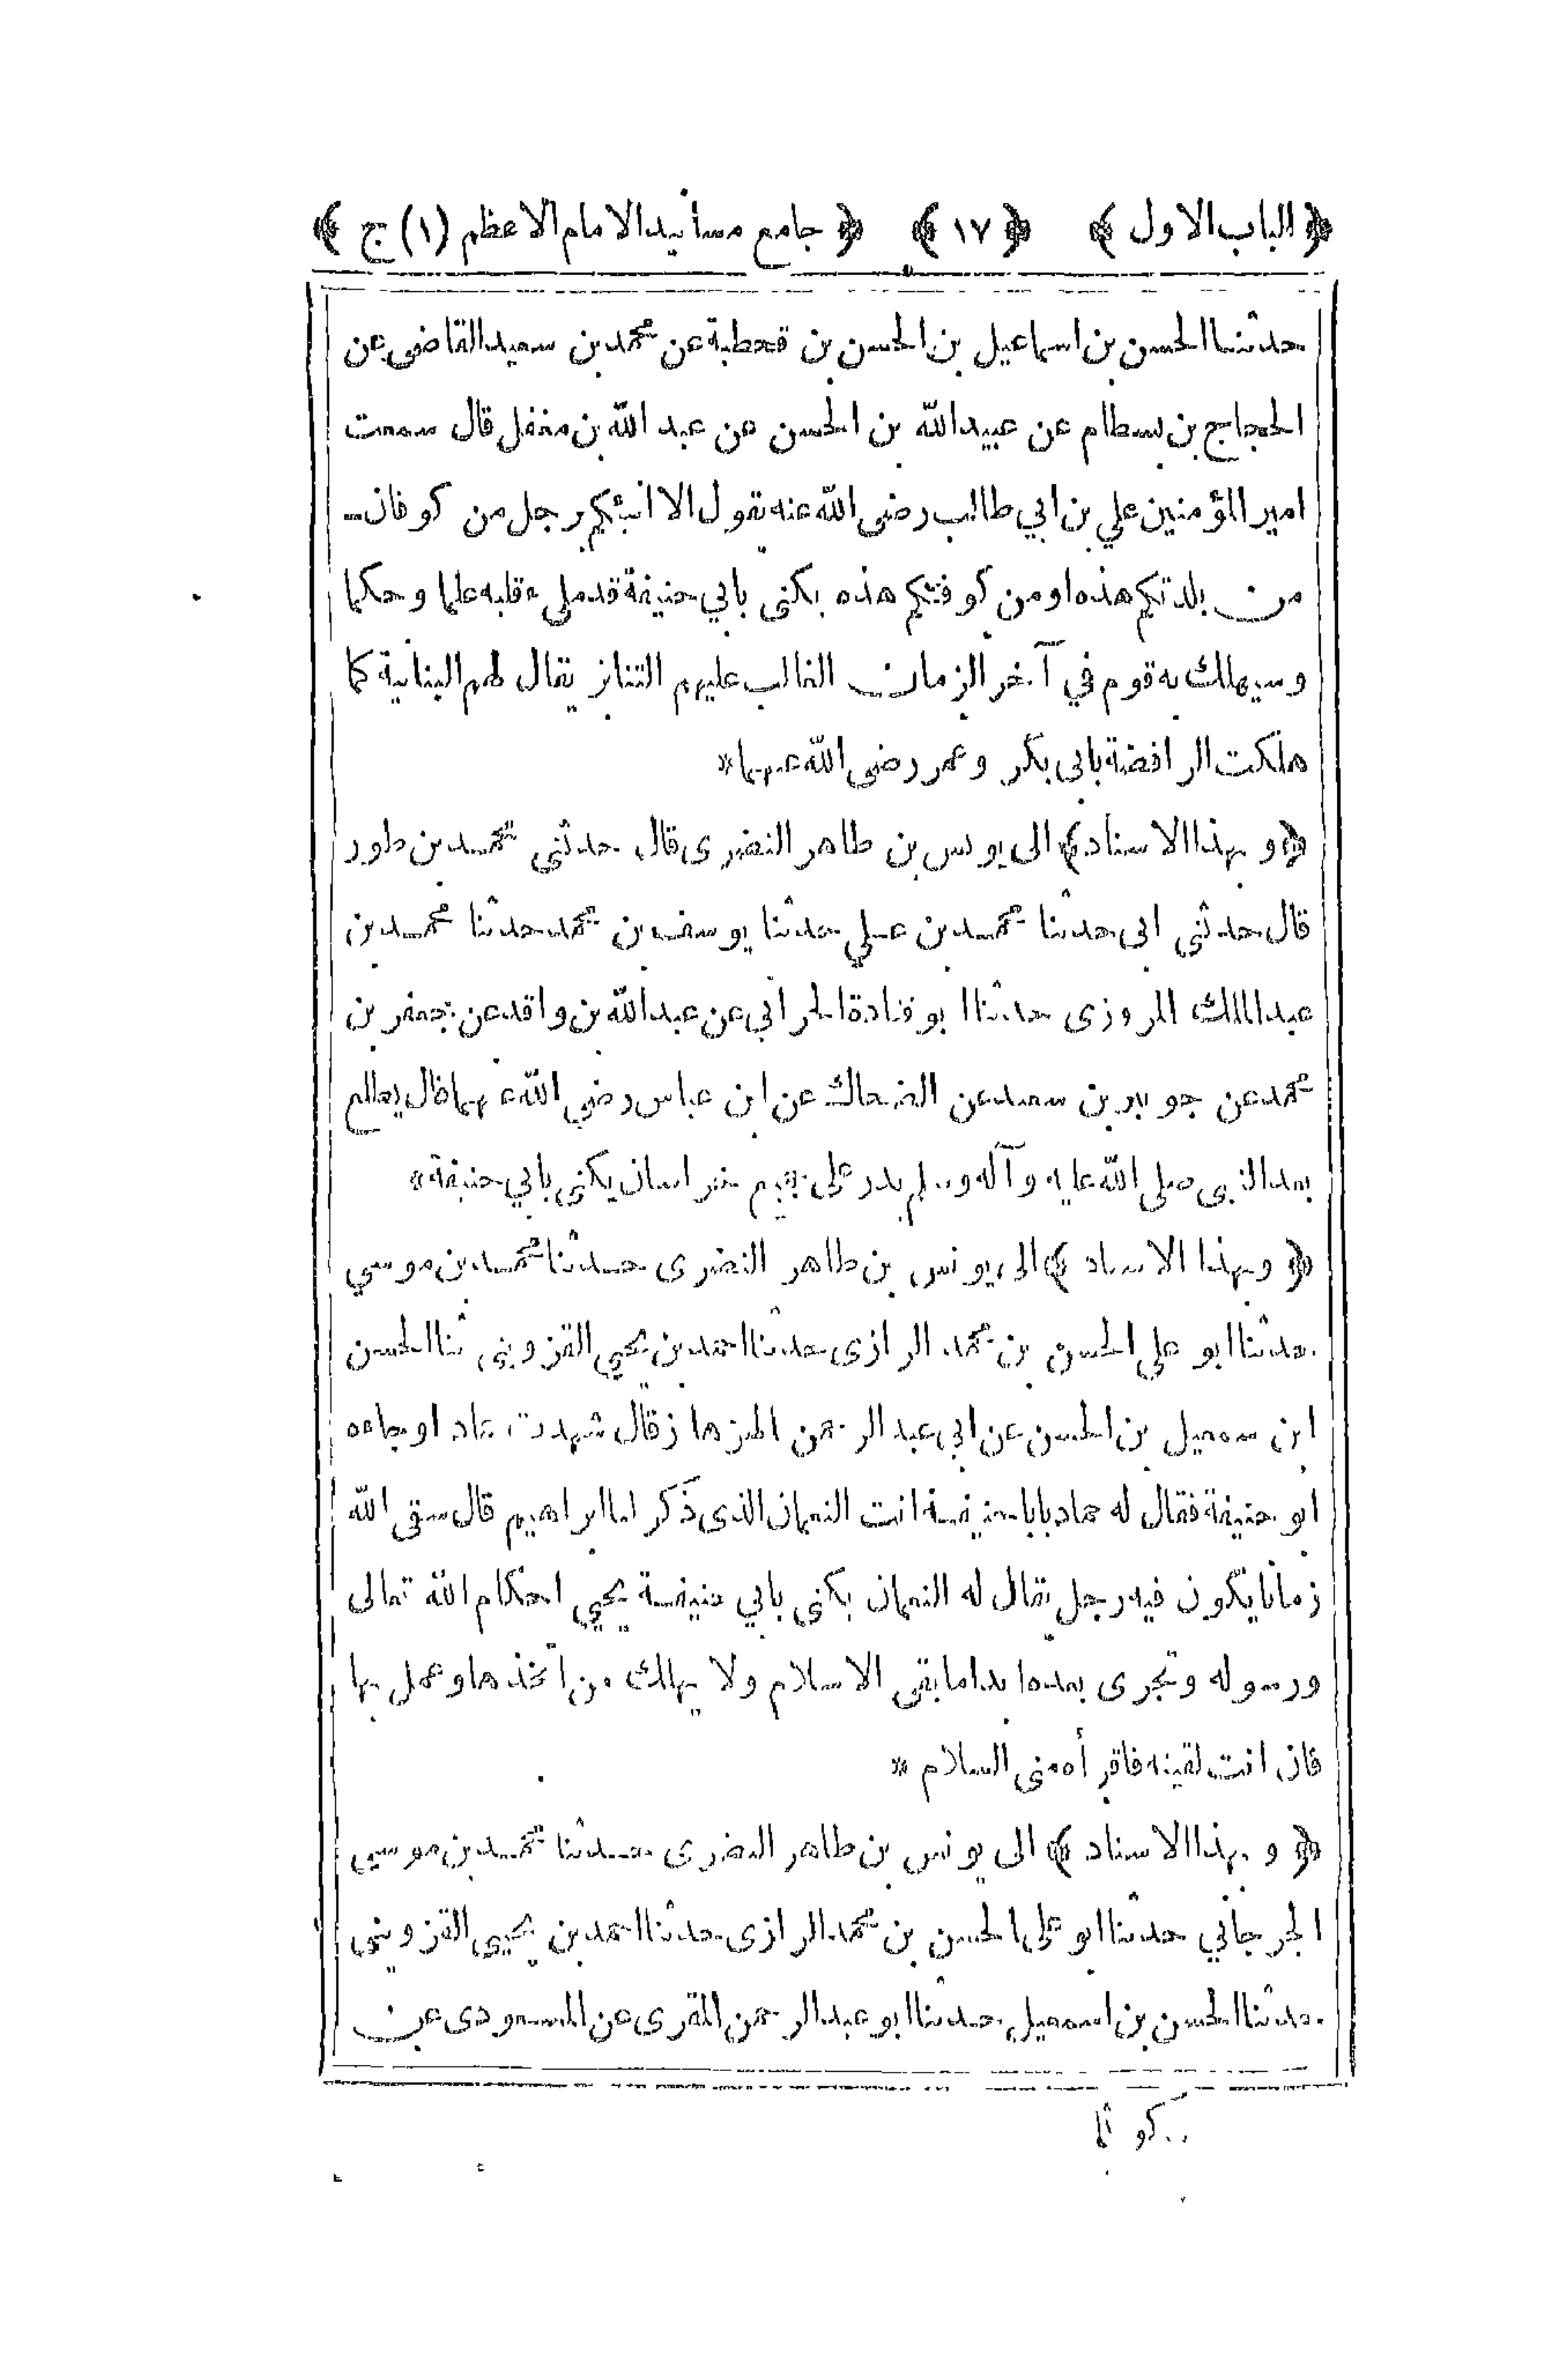 ﴿ الباب الاول ﴾ ﴿ ١٧ ﴾ ﴿ جامع مسانيد الامام الاعظم (١) ج ﴾
حدثنا الحسن بن اسماعيل بن الحسن بن قحطبة عن محمد بن سعيد القاضى عن
الحجاج بن بسطام عن عبيد الله بن الحسن عن عبد الله بن مغفل قال سمعت
امير المؤمنين علي بن ابي طالب رضى الله عنه يقول الا انبئكم برجل من كوفان
من بلدتكم هذه او من كوفتكم هذه يكنى بابي حنيفة قد ملىء قلبه علما وحكما
وسيهلك به قوم في آخر الزمان الغالب عليهم التنابز يقال لهم البنانية كما
هلكت الرافضة بابى بكر وعمر رضى الله عنهما *
﴿ و بهذا الاسناد ﴾ الى يونس بن طاهر النضرى قال حدثنى محمد بن طور
قال حدثنى ابى حدثنا محمد بن علي حدثنا يوسف بن محمد حدثنا محمد بن
عبد الملك المروزى حدثنا ابو قتادة الحرانى عن عبد الله بن واقد عن جعفر بن
محمد عن جويبر بن سعيد عن الضحاك عن ابن عباس رضى الله عنهما قال يطلع
بعد النبى صلى الله عليه وآله وسلم بدر على جميع خراسان يكنى بابي حنيفة *
﴿ وبهذا الاسناد ﴾ الى يونس بن طاهر النضرى حدثنا محمد بن موسي
حدثنا ابو على الحسن بن محمد الرازى حدثنا احمد بن يحيي القزوينى ثنا الحسن
ابن سمعيل بن الحسن عن ابى عبد الرحمن قال شهدت حمادا وجاءه
ابو حنيفة فقال له حماد يابا حنيفة انت النعمان الذى ذكر لنا ابراهيم قال سقى الله
زمانا يكون فيه رجل يقال له النعمان يكنى بابي حنيفة يحيي احكام الله تعالى
ورسوله وتجرى بعده ابدا ما بقى الاسلام ولا يهلك من اتخذها وعمل بها
فان انت لقيته فاقرأه منى السلام *
﴿ و بهذا الاسناد ﴾ الى يونس بن طاهر النضرى حدثنا محمد بن موسي
الجرجاني حدثنا ابو على الحسن بن محمد الرازى حدثنا احمد بن يحيى القزوينى
حدثنا الحسن بن اسمعيل حدثنا ابو عبد الرحمن المقرى عن المسعودى عن